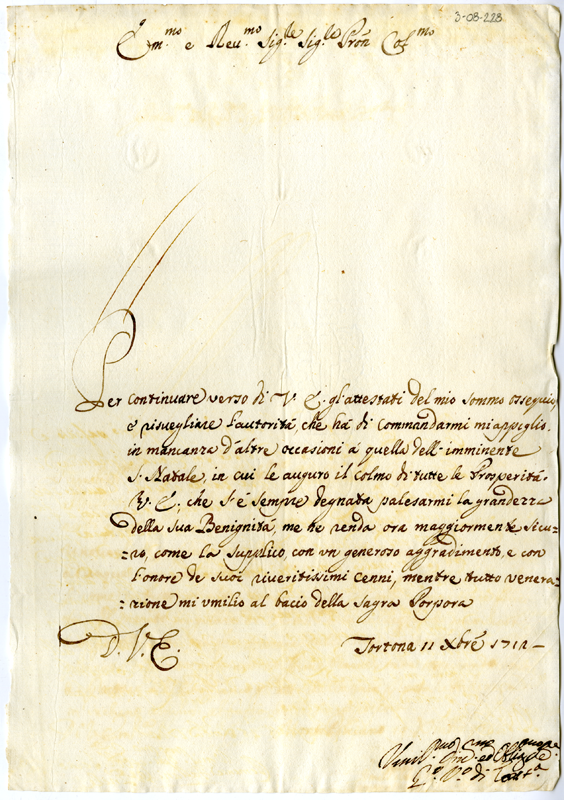 3-08-228
Em.mo e Reu.mo Sig.re Sig.re Prõn Col.mo
Per continuare verso di V. E. gl'attestati del mio sommo ossequio,
e risuegliare l'autorità, che hà di commandarmi mi appiglio
in mancanza d'altre occasioni à quella dell'imminente
S. Natale, in cui le auguro il colmo di tutte le Prosperità.
V. E., che s'è sempre degnata palesarmi la grandezza
della sua Benignità me ne renda ora maggiormente sicu=
=ro, come la supplico, con un generoso aggradimento, e con
l'onore de suoi riueritissimi cenni, mentre tutto venera=
=zione mi umilio al bacio della sagra Porpora
D. V. E.
Tortona 11 Xbre 1712
Vmil.mo
di